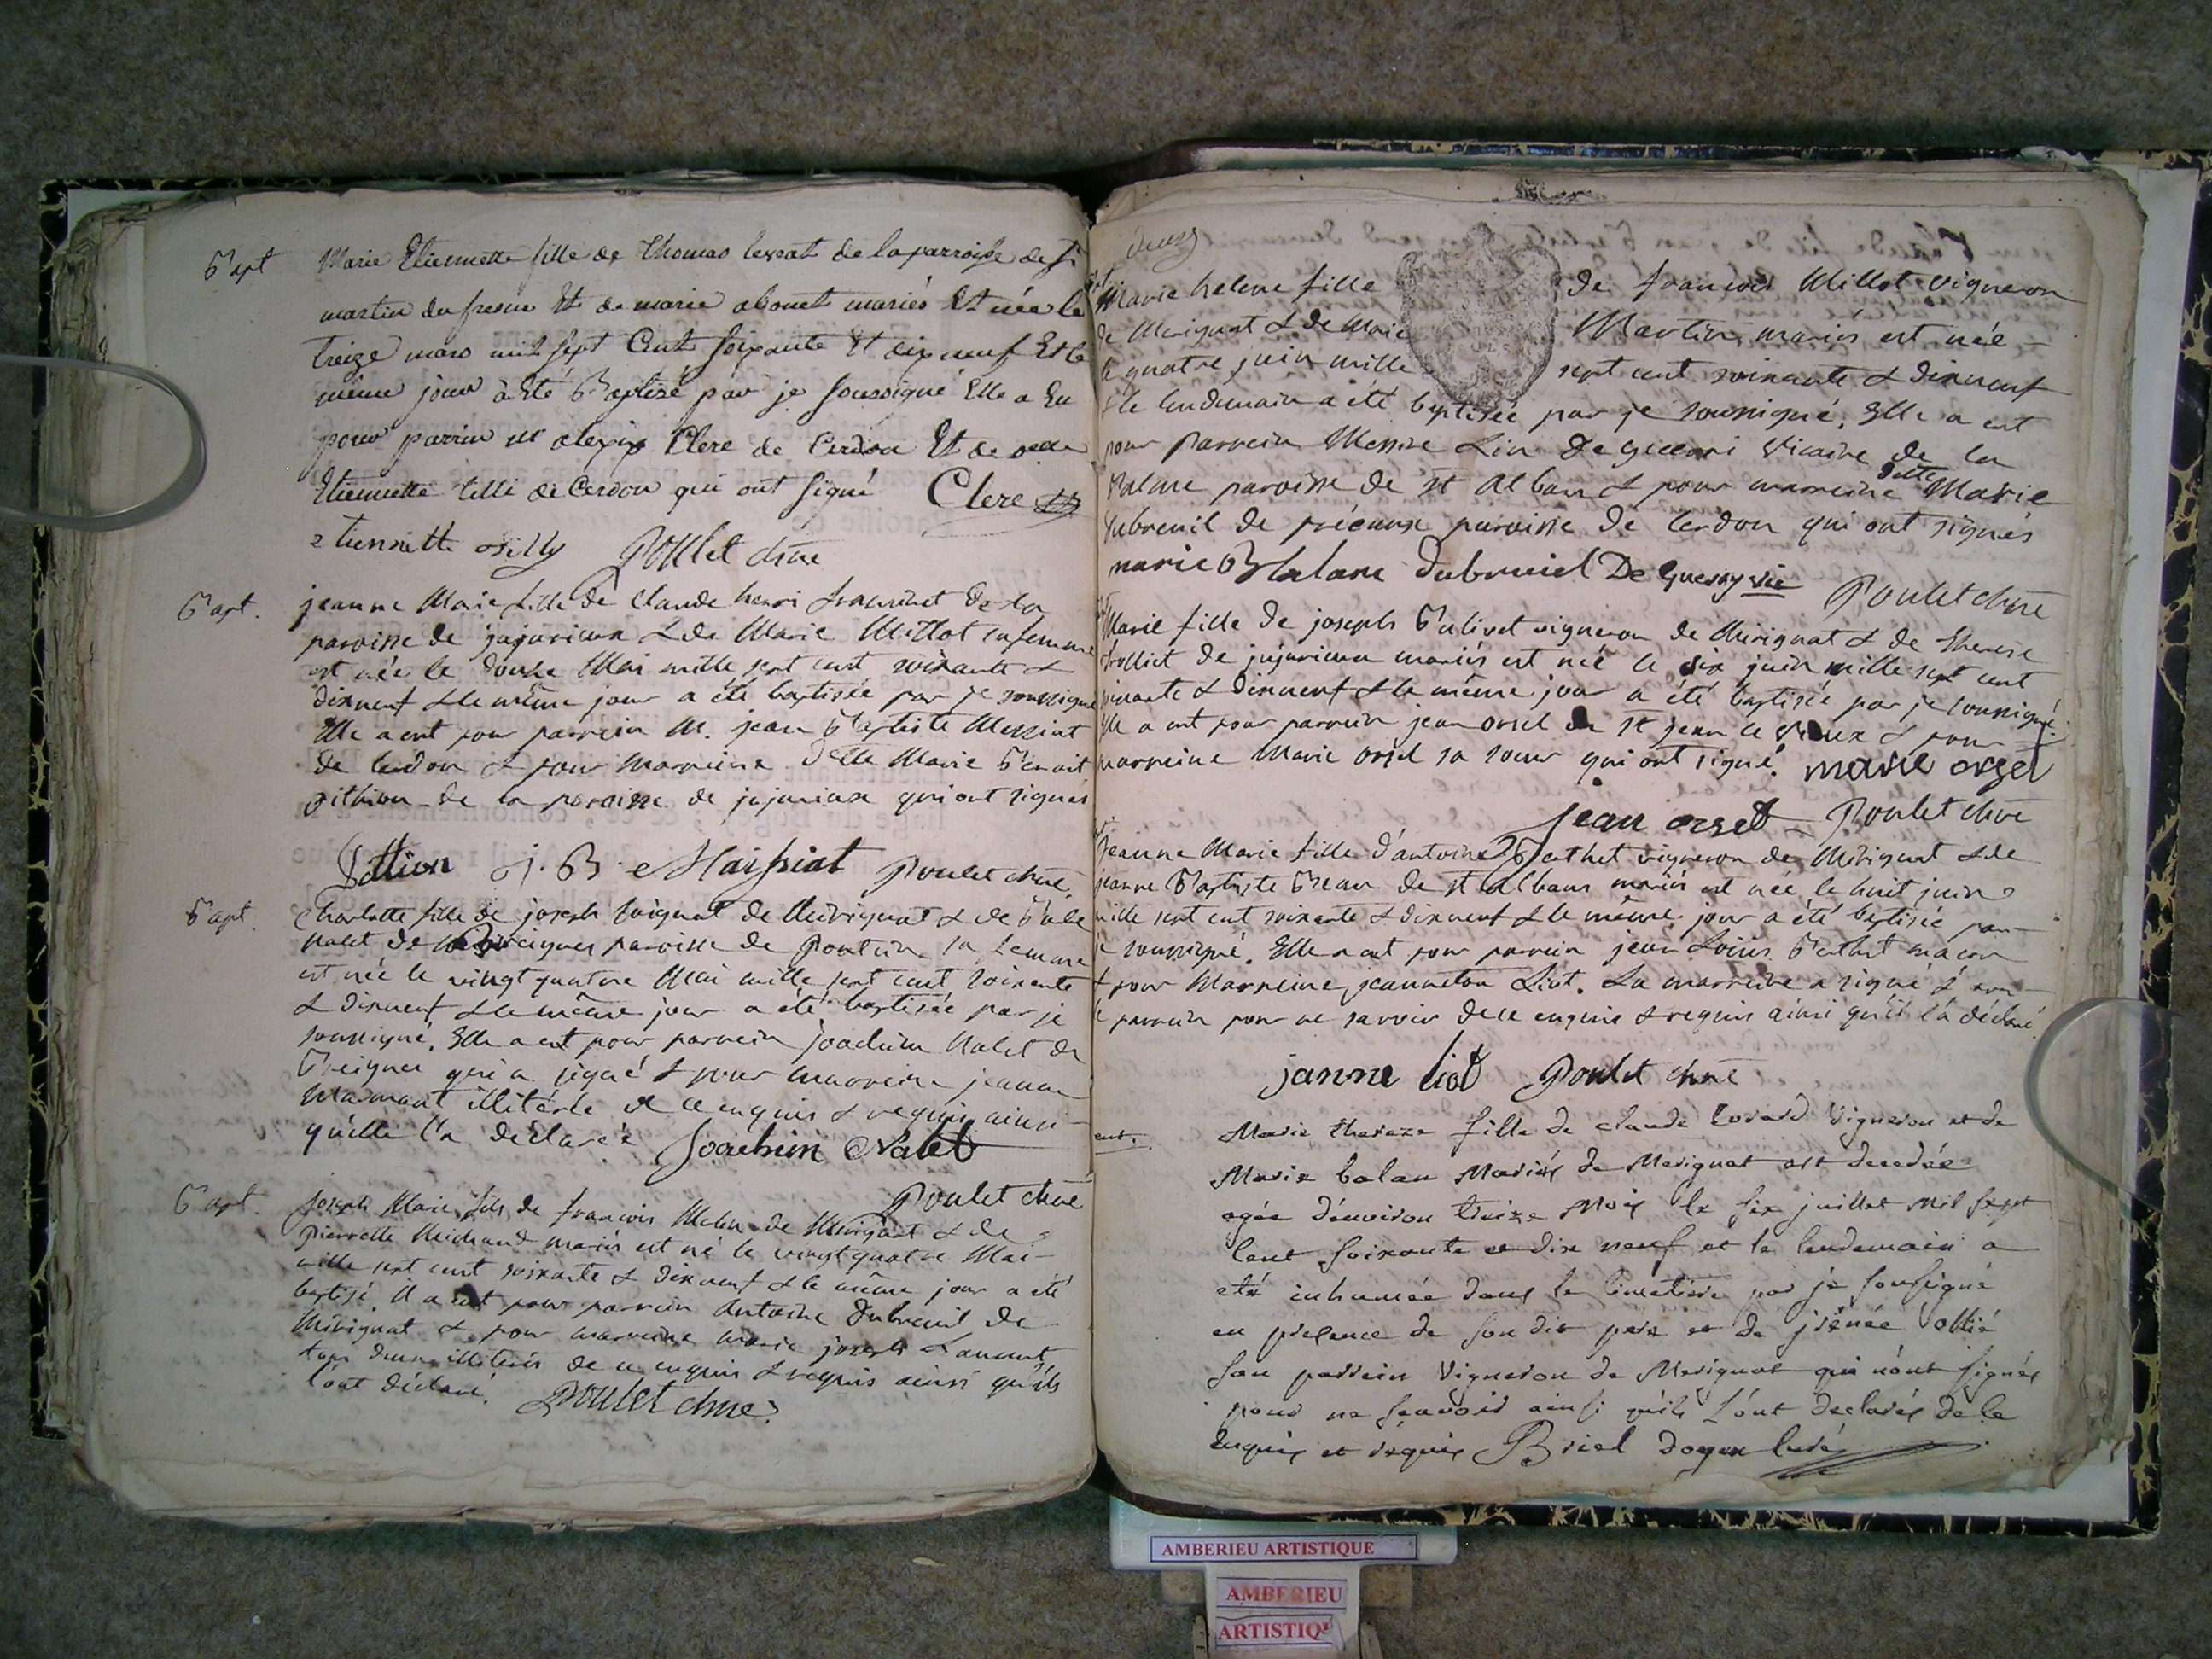 Bapt
Marie Etiennette fille de Thomas levrat de la parroisse de st
martin du fresne Et de marie abouet mariés Et née le
treize mars mil sept Cent soixante Et dix neuf Et le
même jour à Eté Baptisé par je soussigné Elle a Eu
pour parrin mr alexix Clere de Cerdon Et de
Etiennette tilli de Cerdon qui ont signé Clere
etiennette tilly Poulet chne
Bapt.
jeanne Marie fille de Claude henri de la
paroisse de jujurieux & de Marie Millot sa femme
est née le douze Mai mille sept cent soixante &
dixneuf & le même jour a été baptisée par je soussigné
Elle a eut pour parrein M. jean Baptiste Messiat
de Cerdon & pour Marreine delle Marie Benoit
pithion de la paroisse de jujurieux qui ont signés
Pittion J. B. Maissiat Poulet chne
Bapt.
Charlotte fille de joseph soignat de Mérignat & de
nalet de paroisse de Pontin sa femme
est née le vingt quatre Mai mille sept cent soixante
& dixneuf & le même jour a été baptisée par je
soussigné. Elle a eut pour parrein joachim Nalet de
qui a signé & pour marreine jeanne
Marmont illitérée de ce enquis & requis ainsi
qu'elle l'a déclaré Joachim Nalet
Poulet chne
Bapt.
joseph Marie fils de françois Melin de Mérignat & de
pierrette Michaud mariés est né le vingt quatre Mai
mille sept cent soixante & dixneuf & le même jour a été
baptisé. il a eut pour parrein Antoine Dubreuil de
Mérignat & pour marreine marie joseph Laurent
tous deux illiterés de ce enquis & requis ainsi qu'ils
l'ont déclaré. Poulet chne
deux
Marie helene fille de françois Millot vigneron
de Merignat & de Marie Martin mariés est née
le quatre juin mille sept cent soixante & dixneuf
& le lendemain a été baptisée par je soussigné. Elle a eut
pour parrein Messire Lin Degueeri Vicaire de la
Balme paroisse de st Alban & pour marreine delle Marie
dubreuil de préceux paroisse de Cerdon qui ont signés
marie dubreuiel De Guerry vic Poulet chne
Marie fille de joseph Bulivet vigneron de Mérignat & de therese
trolliet de jujurieux mariés est née le six juin mille sept cent
soixante & dixneuf & le même jour a été baptisée par je soussigné.
Elle a eut pour parrein jean orsel de st jean le vieux & pour
marreine Marie orsel sa soeur qui ont signé. marie orsel
jean orset Poulet chne
jeanne Marie fille d'antoine Berthet vigneron de Mérignat & de
jeanne Baptiste de st Alban mariés est née le huit juin
mille sept cent soixante & dixneuf & le même jour a été baptisée par
je soussigné. Elle a eut pour parrein jean Louis Berthet maçon
& pour Marreine jeanneton Liot. La marreine a signé & non
le parrein pour ne savoir de ce enquis & requis ainsi qu'il l'a déclaré
janne liot Poulet chne
ent.
Marie thereze fille de claude Vigneron et de
Marie balan Mariés de Merignat est decedée
agée d'environ treize Mois le six juillet Mil sept
Cent soixante et dix neuf et le lendemain a
eté inhumée dans le Cimetière par je sousigné
en presence de son dit pere et de ollié
son parrein Vigneron de Merignat qui n'ont signés
pour ne sçavoir ainsi qu'ils l'ont declarés de ce
Enquis et requis Briel doyen Curé
AMBERIEU ARTISTIQUE
AMBERIEU
ARTISTIQ